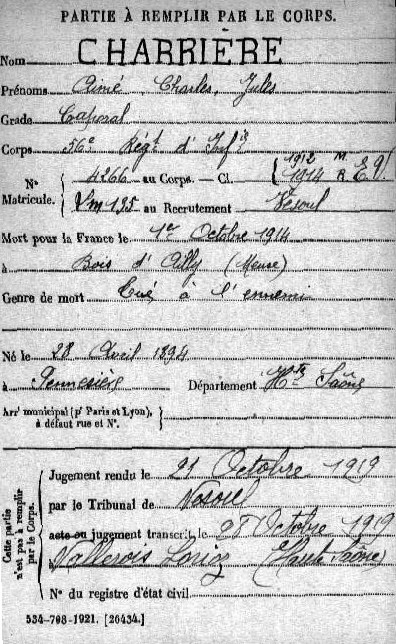 PARTIE À REMPLIR PAR LE CORPS.
Nom CHARRIÈRE
Prénoms Aimé Charles, Jules
Grade Caporal
Corps 56e Régt d'Infie
No Matricule. 4266 au Corps. — Cl. 1912 M. 1914 R E.V
Vm 135 au Recrutement Vesoul
Mort pour la France le 1er Octobre 1914
à Bois d'Ailly (Meuse)
Genre de mort Tué à l'ennemi
Né le 28 Avril 1894
à Pennesières Département Hte Saône
Arrt municipal (pr Paris et Lyon),
à défaut rue et No.
Cette partie
n'est pas à remplir
par le Corps.
Jugement rendu le 21 Octobre 1919
par le Tribunal de Vesoul
acte ou jugement transcrit le Octobre 1919
à Vallerois Lorioz (Haute Saône)
No du registre d'état civil
534-708-1921. [26434.]